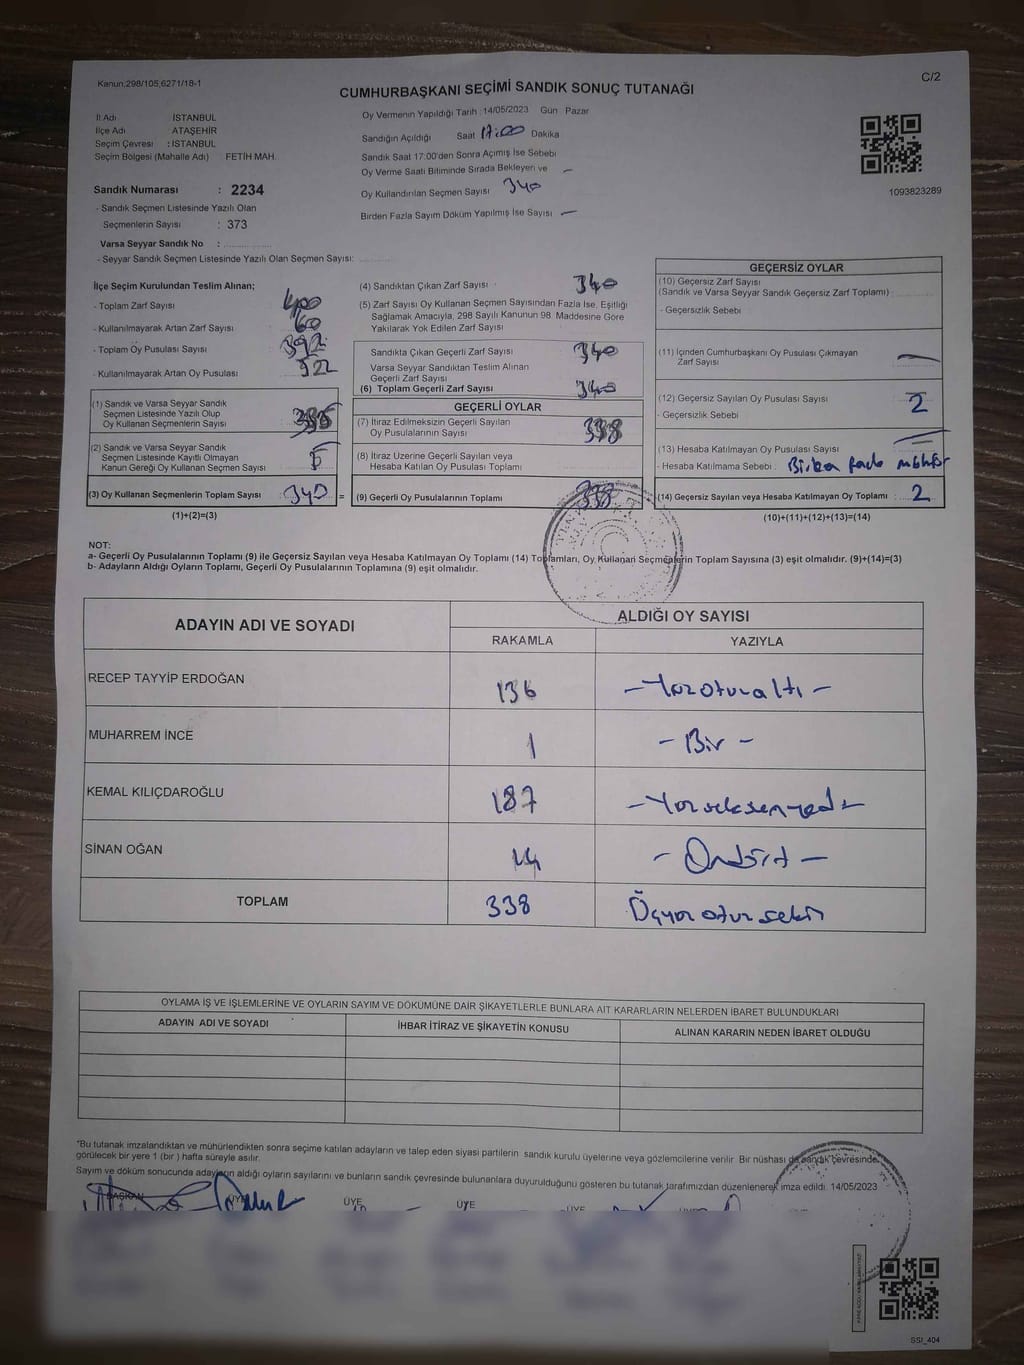 Kanun.298/105,6271/18-1
C/2
CUMHURBAŞKANI SEÇİMİ SANDIK SONUÇ TUTANAĞI
İl Adı İSTANBUL
İlçe Adı ATAŞEHİR
Seçim Çevresi : İSTANBUL
Seçim Bölgesi (Mahalle Adı) FETİH MAH.
Sandık Numarası : 2234
- Sandık Seçmen Listesinde Yazılı Olan
Seçmenlerin Sayısı : 373
Varsa Seyyar Sandık No :
- Seyyar Sandık Seçmen Listesinde Yazılı Olan Seçmen Sayısı:
Oy Vermenin Yapıldığı Tarih : 14/05/2023 Gün Pazar
Sandığın Açıldığı Saat 17:00 Dakika
Sandık Saat 17:00'den Sonra Açılmış İse Sebebi
Oy Verme Saati Bitiminde Sırada Bekleyen ve —
Oy Kullandırılan Seçmen Sayısı 340
Birden Fazla Sayım Döküm Yapılmış İse Sayısı —
1093823289
İlçe Seçim Kurulundan Teslim Alınan;
- Toplam Zarf Sayısı : 400
- Kullanılmayarak Artan Zarf Sayısı : 60
- Toplam Oy Pusulası Sayısı : 392
- Kullanılmayarak Artan Oy Pusulası
(1) Sandık ve Varsa Seyyar Sandık
Seçmen Listesinde Yazılı Olup
Oy Kullanan Seçmenlerin Sayısı : 335
(2) Sandık ve Varsa Seyyar Sandık
Seçmen Listesinde Kayıtlı Olmayan
Kanun Gereği Oy Kullanan Seçmen Sayısı : 5
(3) Oy Kullanan Seçmenlerin Toplam Sayısı : 340 =
(1)+(2)=(3)
(4) Sandıktan Çıkan Zarf Sayısı : 340
(5) Zarf Sayısı Oy Kullanan Seçmen Sayısından Fazla İse, Eşitliği
Sağlamak Amacıyla, 298 Sayılı Kanunun 98. Maddesine Göre
Yakılarak Yok Edilen Zarf Sayısı
Sandıkta Çıkan Geçerli Zarf Sayısı : 340
Varsa Seyyar Sandıktan Teslim Alınan
Geçerli Zarf Sayısı
(6) Toplam Geçerli Zarf Sayısı : 340
GEÇERLİ OYLAR
(7) İtiraz Edilmeksizin Geçerli Sayılan
Oy Pusulalarının Sayısı : 338
(8) İtiraz Üzerine Geçerli Sayılan veya
Hesaba Katılan Oy Pusulası Toplamı
(9) Geçerli Oy Pusulalarının Toplamı : 338
GEÇERSİZ OYLAR
(10) Geçersiz Zarf Sayısı
(Sandık ve Varsa Seyyar Sandık Geçersiz Zarf Toplamı) :
- Geçersizlik Sebebi
(11) İçinden Cumhurbaşkanı Oy Pusulası Çıkmayan
Zarf Sayısı —
(12) Geçersiz Sayılan Oy Pusulası Sayısı : 2
- Geçersizlik Sebebi
(13) Hesaba Katılmayan Oy Pusulası Sayısı : —
- Hesaba Katılmama Sebebi : Birden fazla mühür
(14) Geçersiz Sayılan veya Hesaba Katılmayan Oy Toplamı : 2
(10)+(11)+(12)+(13)=(14)
NOT:
a- Geçerli Oy Pusulalarının Toplamı (9) ile Geçersiz Sayılan veya Hesaba Katılmayan Oy Toplamı (14) Toplamları, Oy Kullanan Seçmenlerin Toplam Sayısına (3) eşit olmalıdır. (9)+(14)=(3)
b- Adayların Aldığı Oyların Toplamı, Geçerli Oy Pusulalarının Toplamına (9) eşit olmalıdır.
ADAYIN ADI VE SOYADI ALDIĞI OY SAYISI
RAKAMLA YAZIYLA
RECEP TAYYİP ERDOĞAN 136 - Yüzotuzaltı -
MUHARREM İNCE 1 - Bir -
KEMAL KILIÇDAROĞLU 187 - Yüzseksenyedi -
SİNAN OĞAN 14 - Ondört -
TOPLAM 338 Üçyüzotuzsekiz
OYLAMA İŞ VE İŞLEMLERİNE VE OYLARIN SAYIM VE DÖKÜMÜNE DAİR ŞİKAYETLERLE BUNLARA AİT KARARLARIN NELERDEN İBARET BULUNDUKLARI
ADAYIN ADI VE SOYADI İHBAR İTİRAZ VE ŞİKAYETİN KONUSU ALINAN KARARIN NEDEN İBARET OLDUĞU
*Bu tutanak imzalandıktan ve mühürlendikten sonra seçime katılan adayların ve talep eden siyasi partilerin sandık kurulu üyelerine veya gözlemcilerine verilir. Bir nüshası da sandık çevresinde
görülecek bir yere 1 (bir ) hafta süreyle asılır.
Sayım ve döküm sonucunda adayların aldığı oyların sayılarını ve bunların sandık çevresinde bulunanlara duyurulduğunu gösteren bu tutanak tarafımızdan düzenlenerek imza edildi. 14/05/2023
BAŞKAN ÜYE ÜYE ÜYE ÜYE
SSİ_404